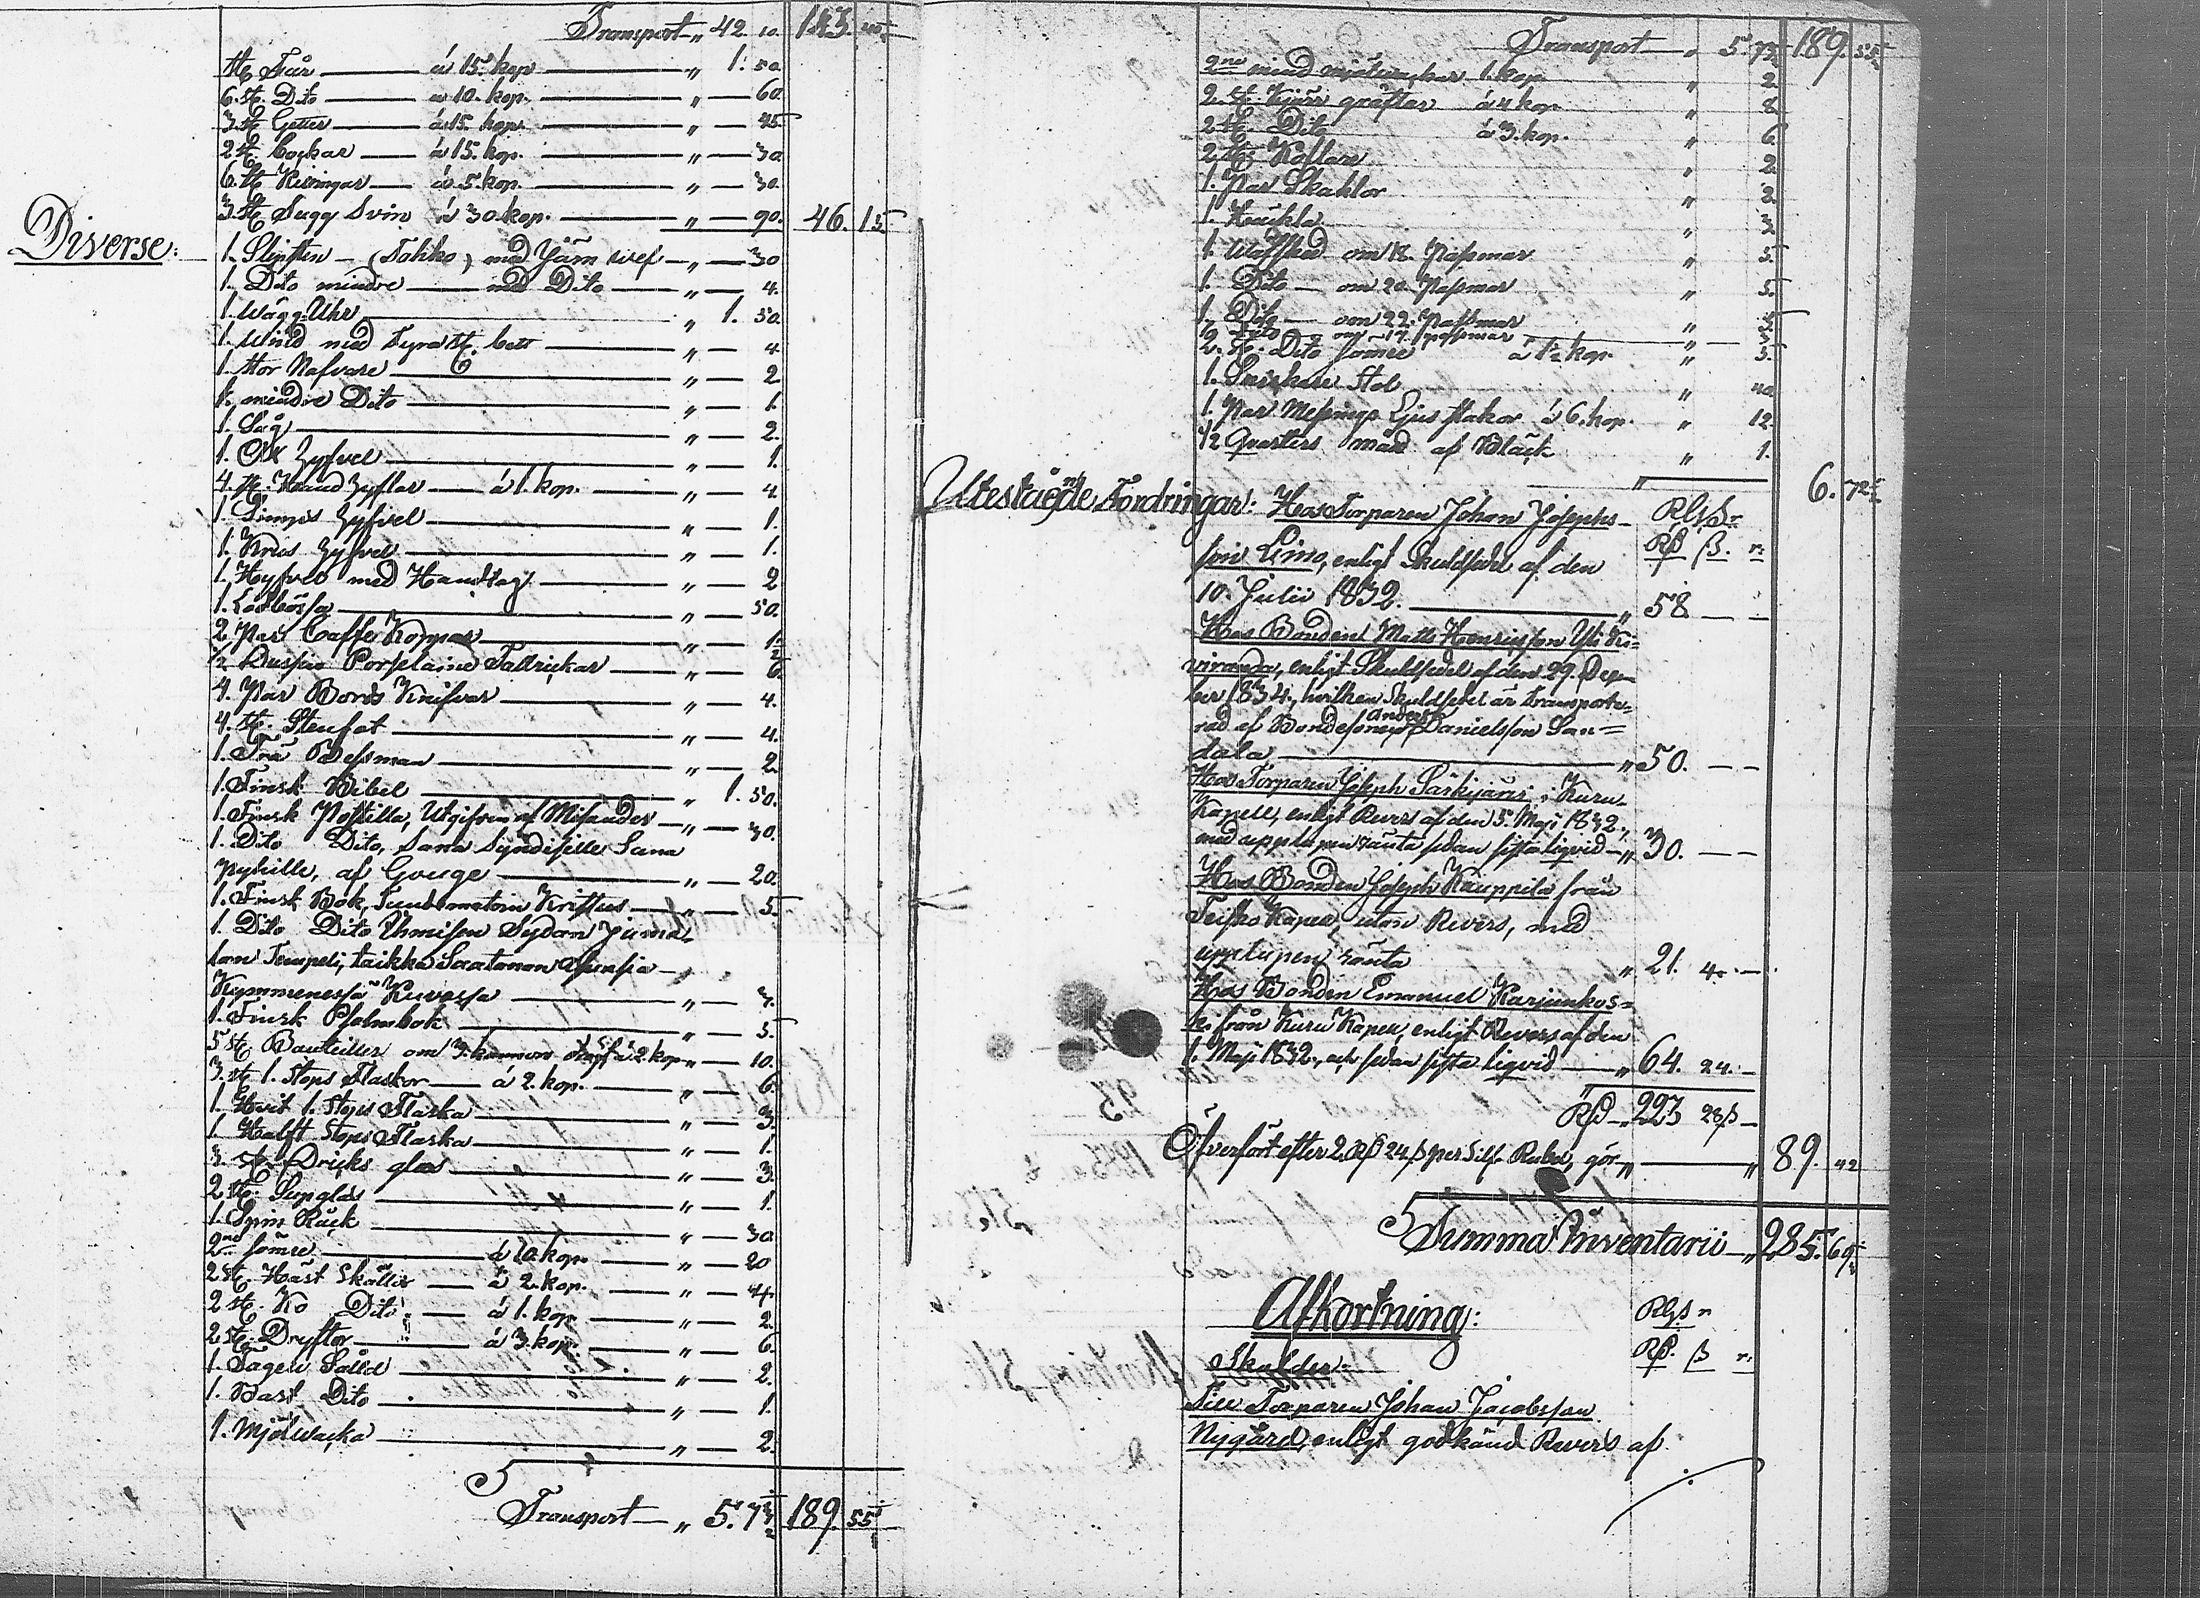 Transport " 42. 10. 143. 40.
st. Får à 15. kop " 1. 50.
6. st. Dito à 10. kop. " 60.
3 st. Getter à 15. kop. " 45
2 st. Bockar à 15. kop. " 30.
6. st. Killingar à 5. kop. " 30.
3 st. Sugg Svin à 30. kop. " 90. 46. 15
Diverse:
1. Slipsten (Tahko) med Järn vef " 30
1. Dito mindre med Dito " 4.
1. Wägg Uhr " 1. 50.
1. Wind med fyra st. bett " 4
1. stor Nafvare " 2
1. mindre Dito " 1.
1. Såg " 2.
1. Ox hyfvel " 1.
4. st. Hand hyflar à 1. kop. " 4
1. Simps hyfvel " 1.
1. Krus hyfvel " 1.
1. Hyfvel med Handtag " 2
1. Lodbössa " 50.
2 Par Caffe Koppar " 1.
1/2 Dussin Porslaine Tallrickar " 6
4. Par Bords Knifvar " 4.
4. st. Stenfat " 4.
1. Trä Bessman " 2.
1. Finsk Bibel " 1. 50.
1. Finsk Postilla, Utgifven af Misander " 30.
1. Dito Dito, Sana Syndisille Sana
Pyhille, af Gouge " 20.
1. Finsk Bok, Tundematoin Kristus " 5
1. Dito Dito Ihmisen Sydän Juma-
lan Tempeli, taikka Saatanan
Kymmenessä Kuvassa " 3.
1. Finsk Psalmbok " 5
5 st. Bouteiller om 3. kannors à 2 kop " 10.
3. st. 1. Stops Flaskor à 2. kop. " 6
1. Hvit 1. Stops Flaska " 3.
1. Halft Stops Flaska " 1.
3. st. Dricks glas " 3.
2 st. Supglas " 1.
1. Spin Råck " 30
2ne sämre à 10. kop. " 20
2 st. Häst Skällor à 2. kop. " 4.
2 st. Ko Dito à 1. kop " 2.
2 st. Dryftor à 3. kop. " 6
1. Tagel Såld " 2.
1. Bast Dito " 1.
1. Mjölwacka " 2.
Transport " 5. 73 189. 55
Transport " 5 73 189. 55
2ne mindre mjölwackar 1. kop. " 2.
2. st. Kjärr gräftar à 4 kop " 8
2 st. Dito à 3. kop. " 6
2 st. Kaflare " 2
1. Par Skaklor " 2
1. Häckla " 3
1. Wäfsked om 18. Passmar " 5.
1. Dito om 20. Passmar " 5.
1. Dito om 22. Passmar "
1. Dito om 17. passmar
2. st. Dito sämre à 1½ kop. " 3.
1. Snickare Stol " 40.
1. Par Messings Ljus stakar à 6. kop. " 12.
1/2 Quarters mått af Bläck " 1.
" 6. 72
Utestående Fordringar:
Hos Torparen Johan Josephs-
son Limo, enligt Skuldsedel af den
Rgs
Rß ß. r:
10. Julii 1832. " 58
Hos Bonden Matts Henricsson Yli Ki-
viranda, enligt Skuldsedel af den 29. Decem
ber 1834., hvilken Skuldsedel är transporte-
rad af Bondesonen Anders Danielsson San-
dala " 50.
Hos Torparen Joseph Särkijärvi i Kuru
Kapell, enligt Revers af den 5. Maji 1832.,
med upplupen ränta sedan sista liqvid " 30.
Hos Bonden Joseph Kauppila från
Teisko Kapell, utan Revers, med
upplupen ränta " 21. 4.
Hos Bonden Emanuel Karjunkos-
ki från Kuru Kapell, enligt Revers af den
1. Maji 1832., och sedan sista liqvid " 64. 24.
Rß " 223 28ß
Öfverfört efter 2. Rß 24 ß per Silf. Rubel, gör " 89. 42
Summa Inventarii " 285. 69
Afkortning:
Rgs r
Rß. ß r:
Skulder:
Till Torparen Johan Jacobsson
Nygård, enligt godkänd Revers af